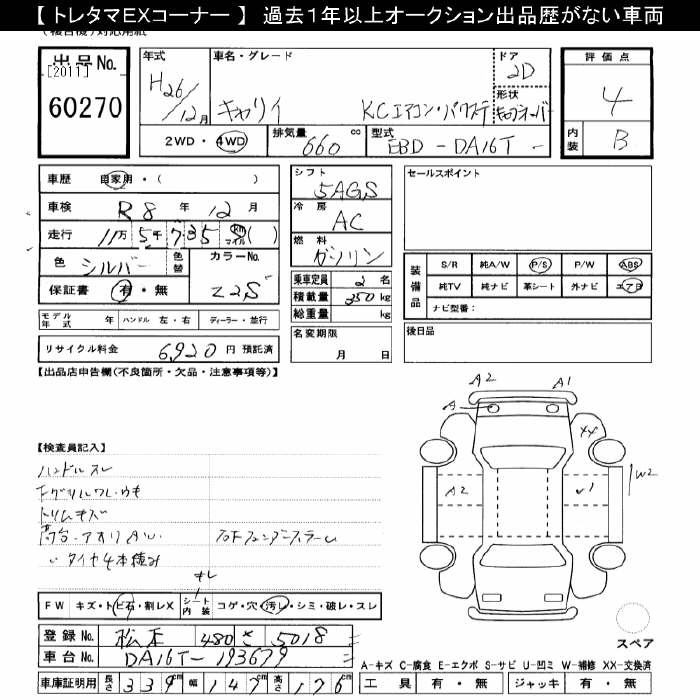 【 トレタマEXコーナー 】 過去1年以上オークション出品歴がない車両
出品No.
[2011]
60270
年式
H26/12月
車名・グレード
キャリイ KCエアコン・パワステ
ドア
2D
形状
評価点
4
内装
B
2WD・4WD
排気量
660 cc
型式
EBD-DA16T
車歴 自家用・( )
車検 R8 年 12 月
走行 11万 5千 7 35 8 km マイル ( )
色 シルバー 色替
カラーNo.
Z2S
保証書 有・無
シフト
5AGS
冷房
AC
燃料
ガソリン
乗車定員 2 名
積載量 350 kg
総重量 kg
名変期限
月 日
セールスポイント
装備品
S/R 純A/W P/S P/W ABS
純TV 純ナビ 革シート 外ナビ エアB
ナビ型番:
後日品
モデル年式 年 ハンドル 左・右 ディーラー・並行
リサイクル料金 6,920 円 預託済
【出品店申告欄(不良箇所・欠品・注意事項等)】
A2 A1
A
XX
A2 1
W2
【検査員記入】
ハンドルスレ
トリムキズ
タイヤ4本積み
スレ
FW キズ・トビ石・割レX シート内装 コゲ・穴・汚レ・シミ・破レ・スレ
登録No. 松本 480 さ 5018
車台No. DA16T-193679
スペア
A-キズ C-腐食 E-エクボ S-サビ U-凹ミ W-補修 XX-交換済
車庫証明用 長さ 339cm 幅 147cm 高さ 176
工具 有・無 ジャッキ 有・無